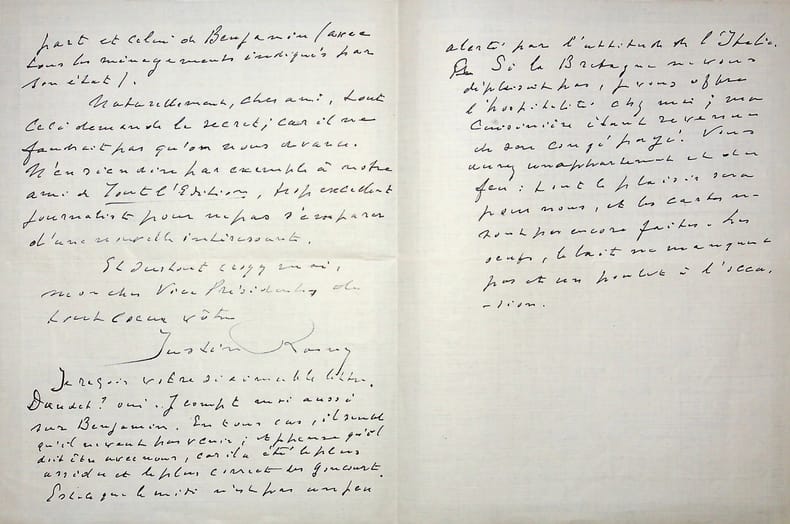 part et celui de Benjamin (avec
tous les ménagements indiqués par
son état).
Naturellement, cher ami, tout
cela demande le secret; car il ne
faudrait pas qu'on nous devance.
N'en rien dire par exemple à notre
ami de Tout l'Edition, trop excellent
journaliste pour ne pas s'emparer
d'une nouvelle intéressante.
Et surtout croyez moi,
mon cher Vice Président, de
tout coeur vôtre
Justin Rosny
Je reçois votre si aimable lettre.
Daudet? oui. Je compte moi aussi
sur Benjamin. En tous cas, il semble
qu'il ne veut pas venir; et je pense qu'il
doit être avec nous, car il a été le plus
assidu et le plus correct des Goncourt.
Est-ce que le midi n'est pas un peu
alerté par l'attitude de l'Italie.
Si la Bretagne ne vous
déplaisait pas, je vous offre
l'hospitalité chez moi; ma
Cuisinière étant revenue
de son congé payé. Vous
aurez un appartement et du
feu: tout le plaisir sera
pour nous, et les cartes ne
sont pas encore faites. Les
oeufs, le lait ne manquent
pas et un poulet à l'occa-
-sion.